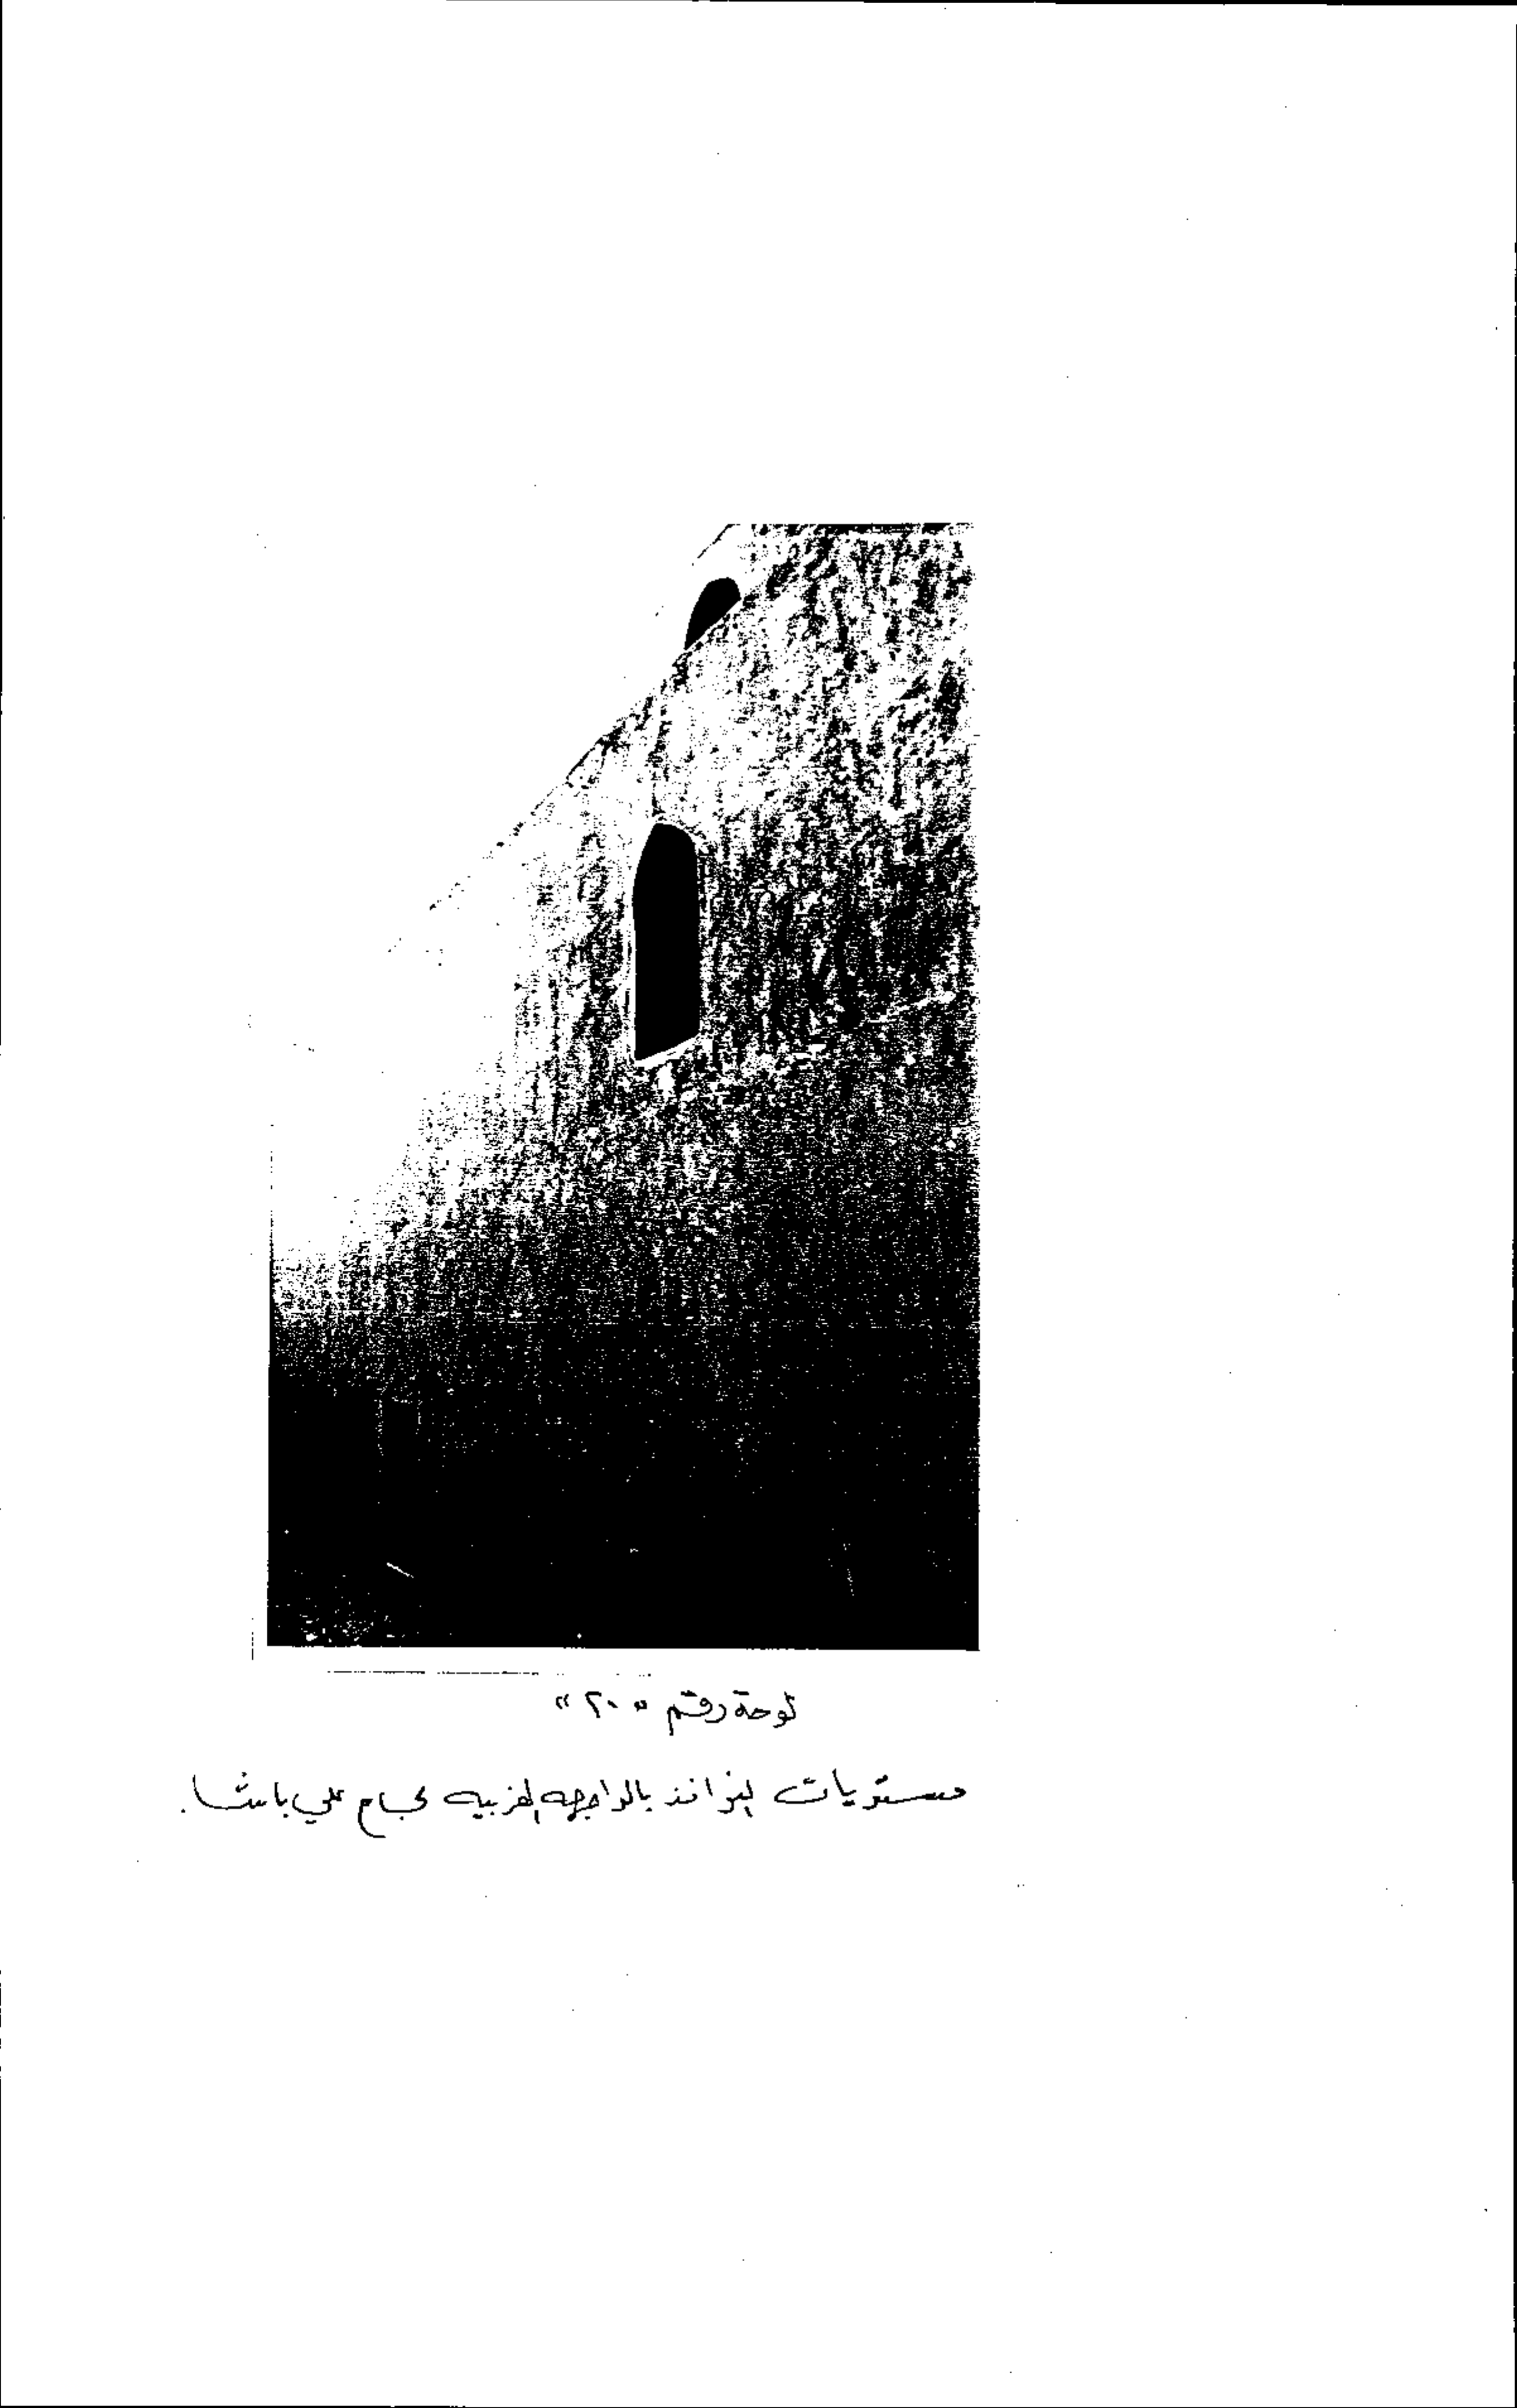 لوحة رقم « ٢٠ »
مستويات النوافذ بالواجهه الغربيه بجامع علي باشا.